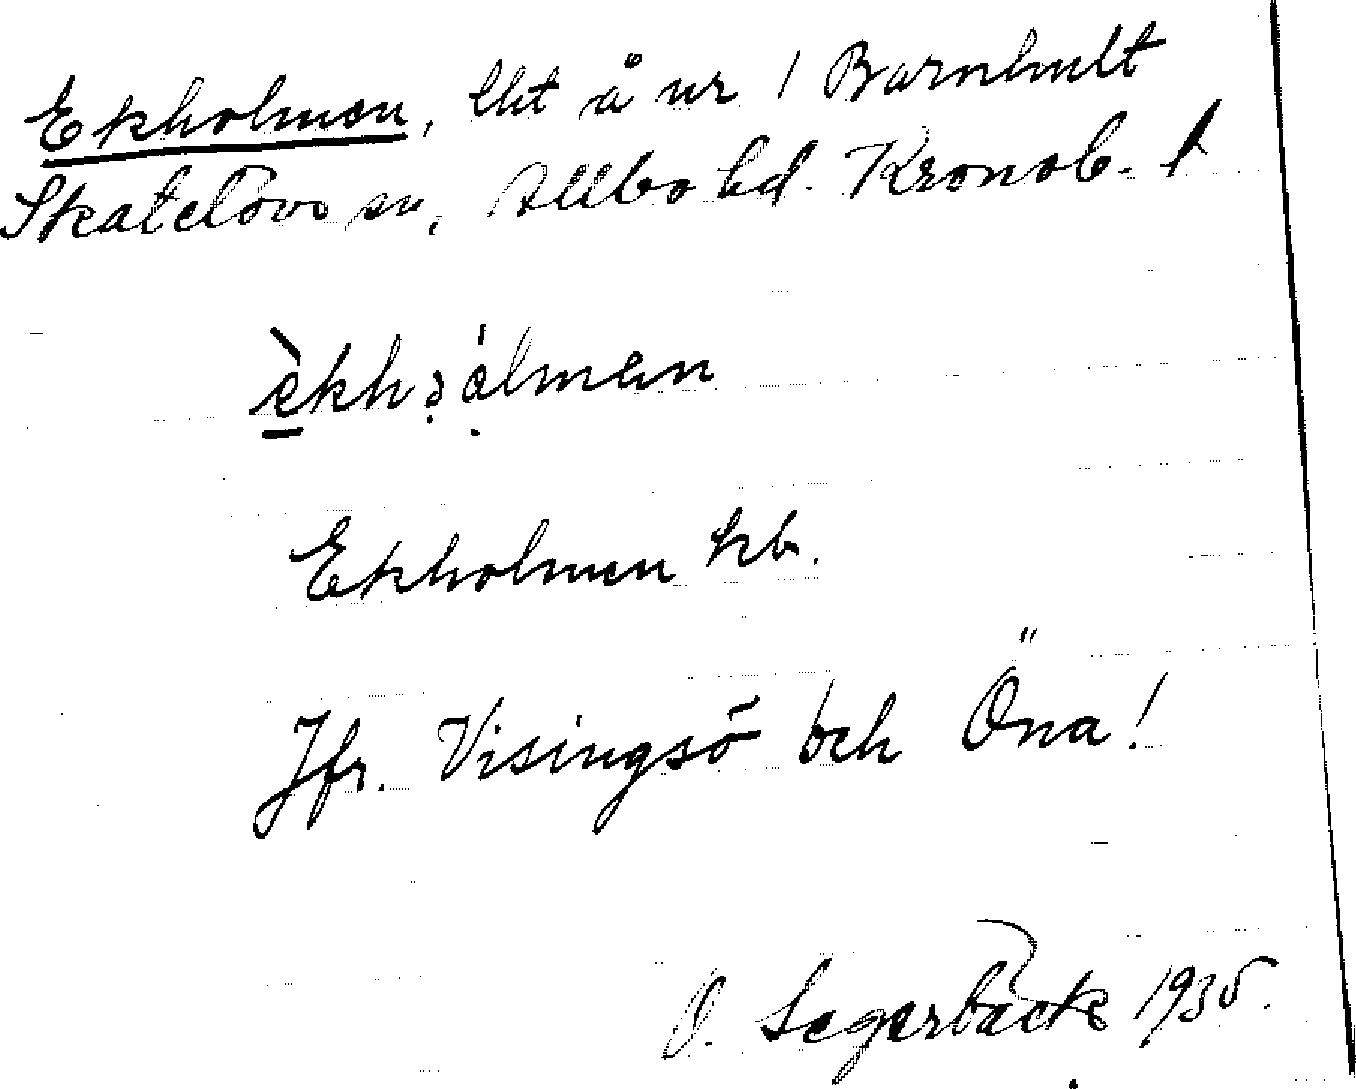 Ekholmen, lht å nr 1 Barnhult
Skatelövs sn, Allbo hd. Kronob. l
Ekholmen kb.
Jfr. Visingsö och Öna!
O. Segerbäck 1935.